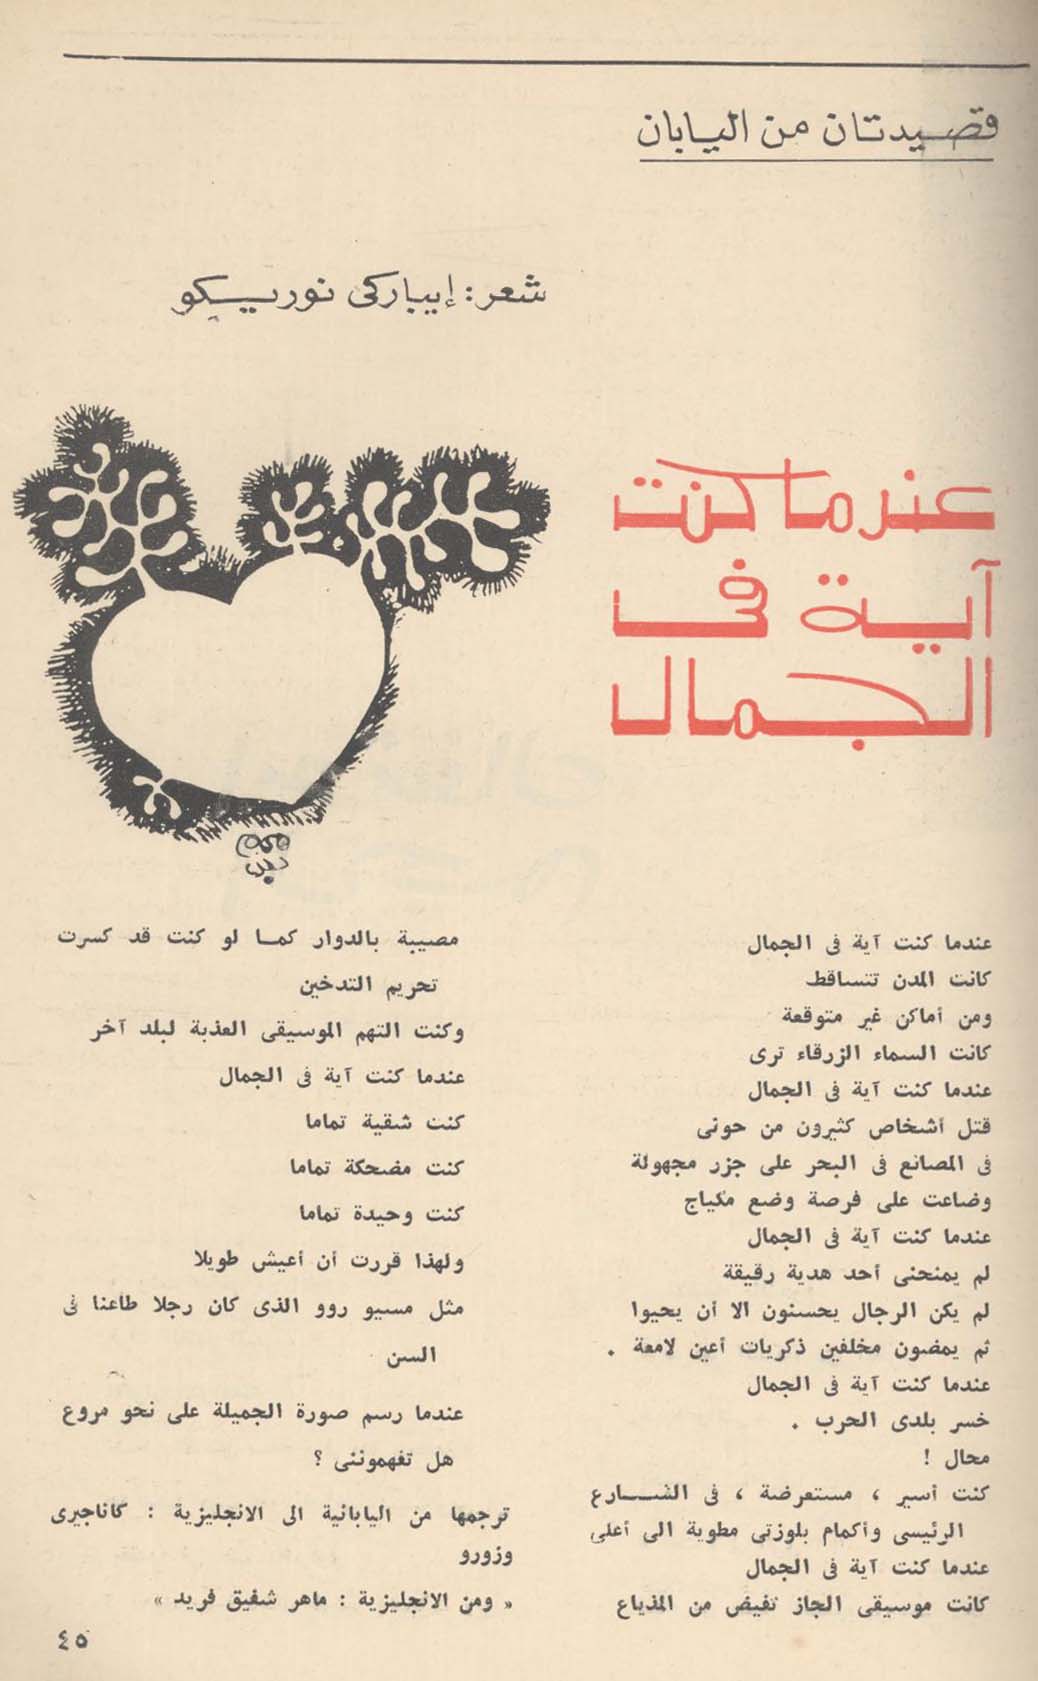 قصيدتان من اليابان
شعر: إيباركى نوريسكو
عندما كنت
آية فى
الجمال
عندما كنت آية فى الجمال
كانت المدن تتساقط
ومن أماكن غير متوقعة
كانت السماء الزرقاء ترى
عندما كنت آية فى الجمال
قتل أشخاص كثيرون من حولى
فى المصانع فى البحر على جزر مجهولة
وضاعت على فرصة وضع مكياج
عندما كنت آية فى الجمال
لم يمنحنى أحد هدية رقيقة
لم يكن الرجال يحسنون الا أن يحيوا
ثم يمضون مخلفين ذكريات أعين لامعة .
عندما كنت آية فى الجمال
خسر بلدى الحرب .
محال !
كنت أسير ، مستعرضة ، فى الشـــارع
الرئيسى وأكمام بلوزتى مطوية الى أعلى
عندما كنت آية فى الجمال
كانت موسيقى الجاز تفيض من المذياع
مصيبة بالدوار كمـا لو كنت قد كسرت
تحريم التدخين
وكنت التهم الموسيقى العذبة لبلد آخر
عندما كنت آية فى الجمال
كنت شقية تماما
كنت مضحكة تماما
كنت وحيدة تماما
ولهذا قررت أن أعيش طويلا
مثل مسيو روو الذى كان رجلا طاعنا فى
السن
عندما رسم صورة الجميلة على نحو مروع
هل تفهموننى ؟
ترجمها من اليابانية الى الانجليزية : كاناجيرى
وزورو
« ومن الانجليزية : ماهر شفيق فريد »
٤٥